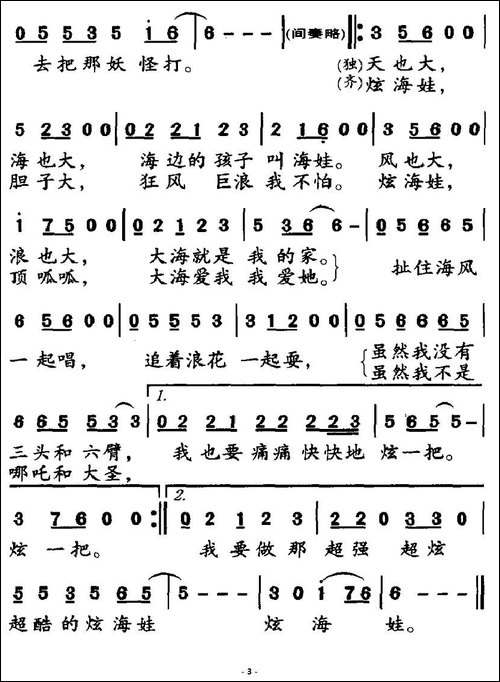 0 5 5 3 5 i 6 | 6 - - - (间奏略) ‖: 3 5 6 0 0 |
去把那妖 怪打。 (独)天也大,
(齐)炫海娃,
5 2 3 0 0 | 0 2 2 1 2 3 | 2 1 6 0 0 | 3 5 6 0 0 |
海也大, 海边的孩子 叫海娃。 风也大,
胆子大, 狂风 巨浪 我不怕。 炫海娃,
i 7 5 0 0 | 0 2 1 2 3 | 5 3 6 6 - | 0 5 6 6 5 |
浪也大, 大海就是 我 的家。 扯住海风
顶呱呱, 大海爱我 我 爱她。
6 5 6 0 0 | 0 5 5 5 3 | 3 1 2 0 0 | 0 5 6 6 6 5 |
一起唱, 追着浪花 一起耍, 虽然我没有
虽然我不是
6 6 5 5 3 3 | 0 2 2 1 2 2 2 2 3 | 5 6 5 5 - |
1.
三头和 六臂, 我 也要 痛痛 快快地 炫一把。
哪吒和 大圣,
3 7 6 0 0 :‖ 0 2 1 2 3 | 2 2 0 3 3 0 |
2.
炫 一把。 我 要做 那 超强 超炫
5 5 3 5 6 5 | 5 - - - | 3 0 i 7 6 | 6 - - - ‖
超酷的炫海娃 炫 海 娃。
- 3 -